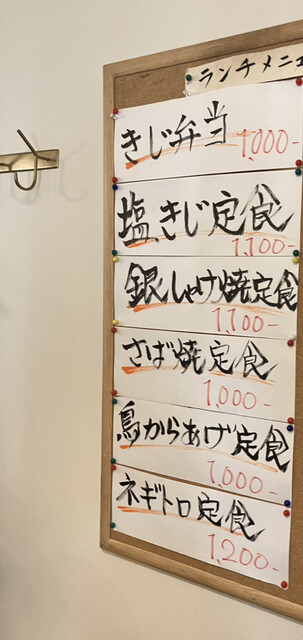 ランチメニュ
きじ弁当 1,000-
塩、きじ定食
1,100-
銀しゃけ焼定食
1,100-
さば焼定食
1,000-
鳥からあげ定食
1,000-
ネギトロ定食
1,200-